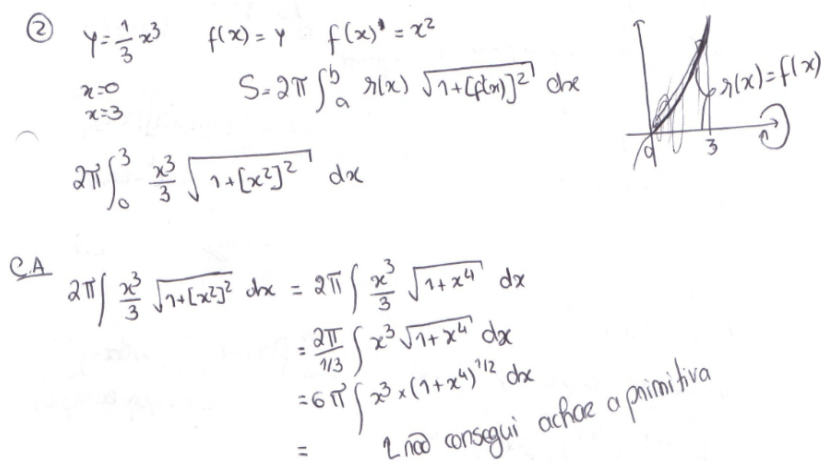 ② y = 1/3 x³ f(x) = y f(x)' = x²
x=0
x=3
S = 2π ∫ₐᵇ r(x) √(1+[f'(x)]²) dx
r(x) = f(x)
0 3
2π ∫₀³ x³/3 √(1+[x²]²) dx
C.A 2π ∫ x³/3 √(1+[x²]²) dx = 2π ∫ x³/3 √(1+x⁴) dx
= 2π/(1/3) ∫ x³ √(1+x⁴) dx
= 6π ∫ x³ × (1+x⁴)^1/2 dx
= não consegui achar a primitiva